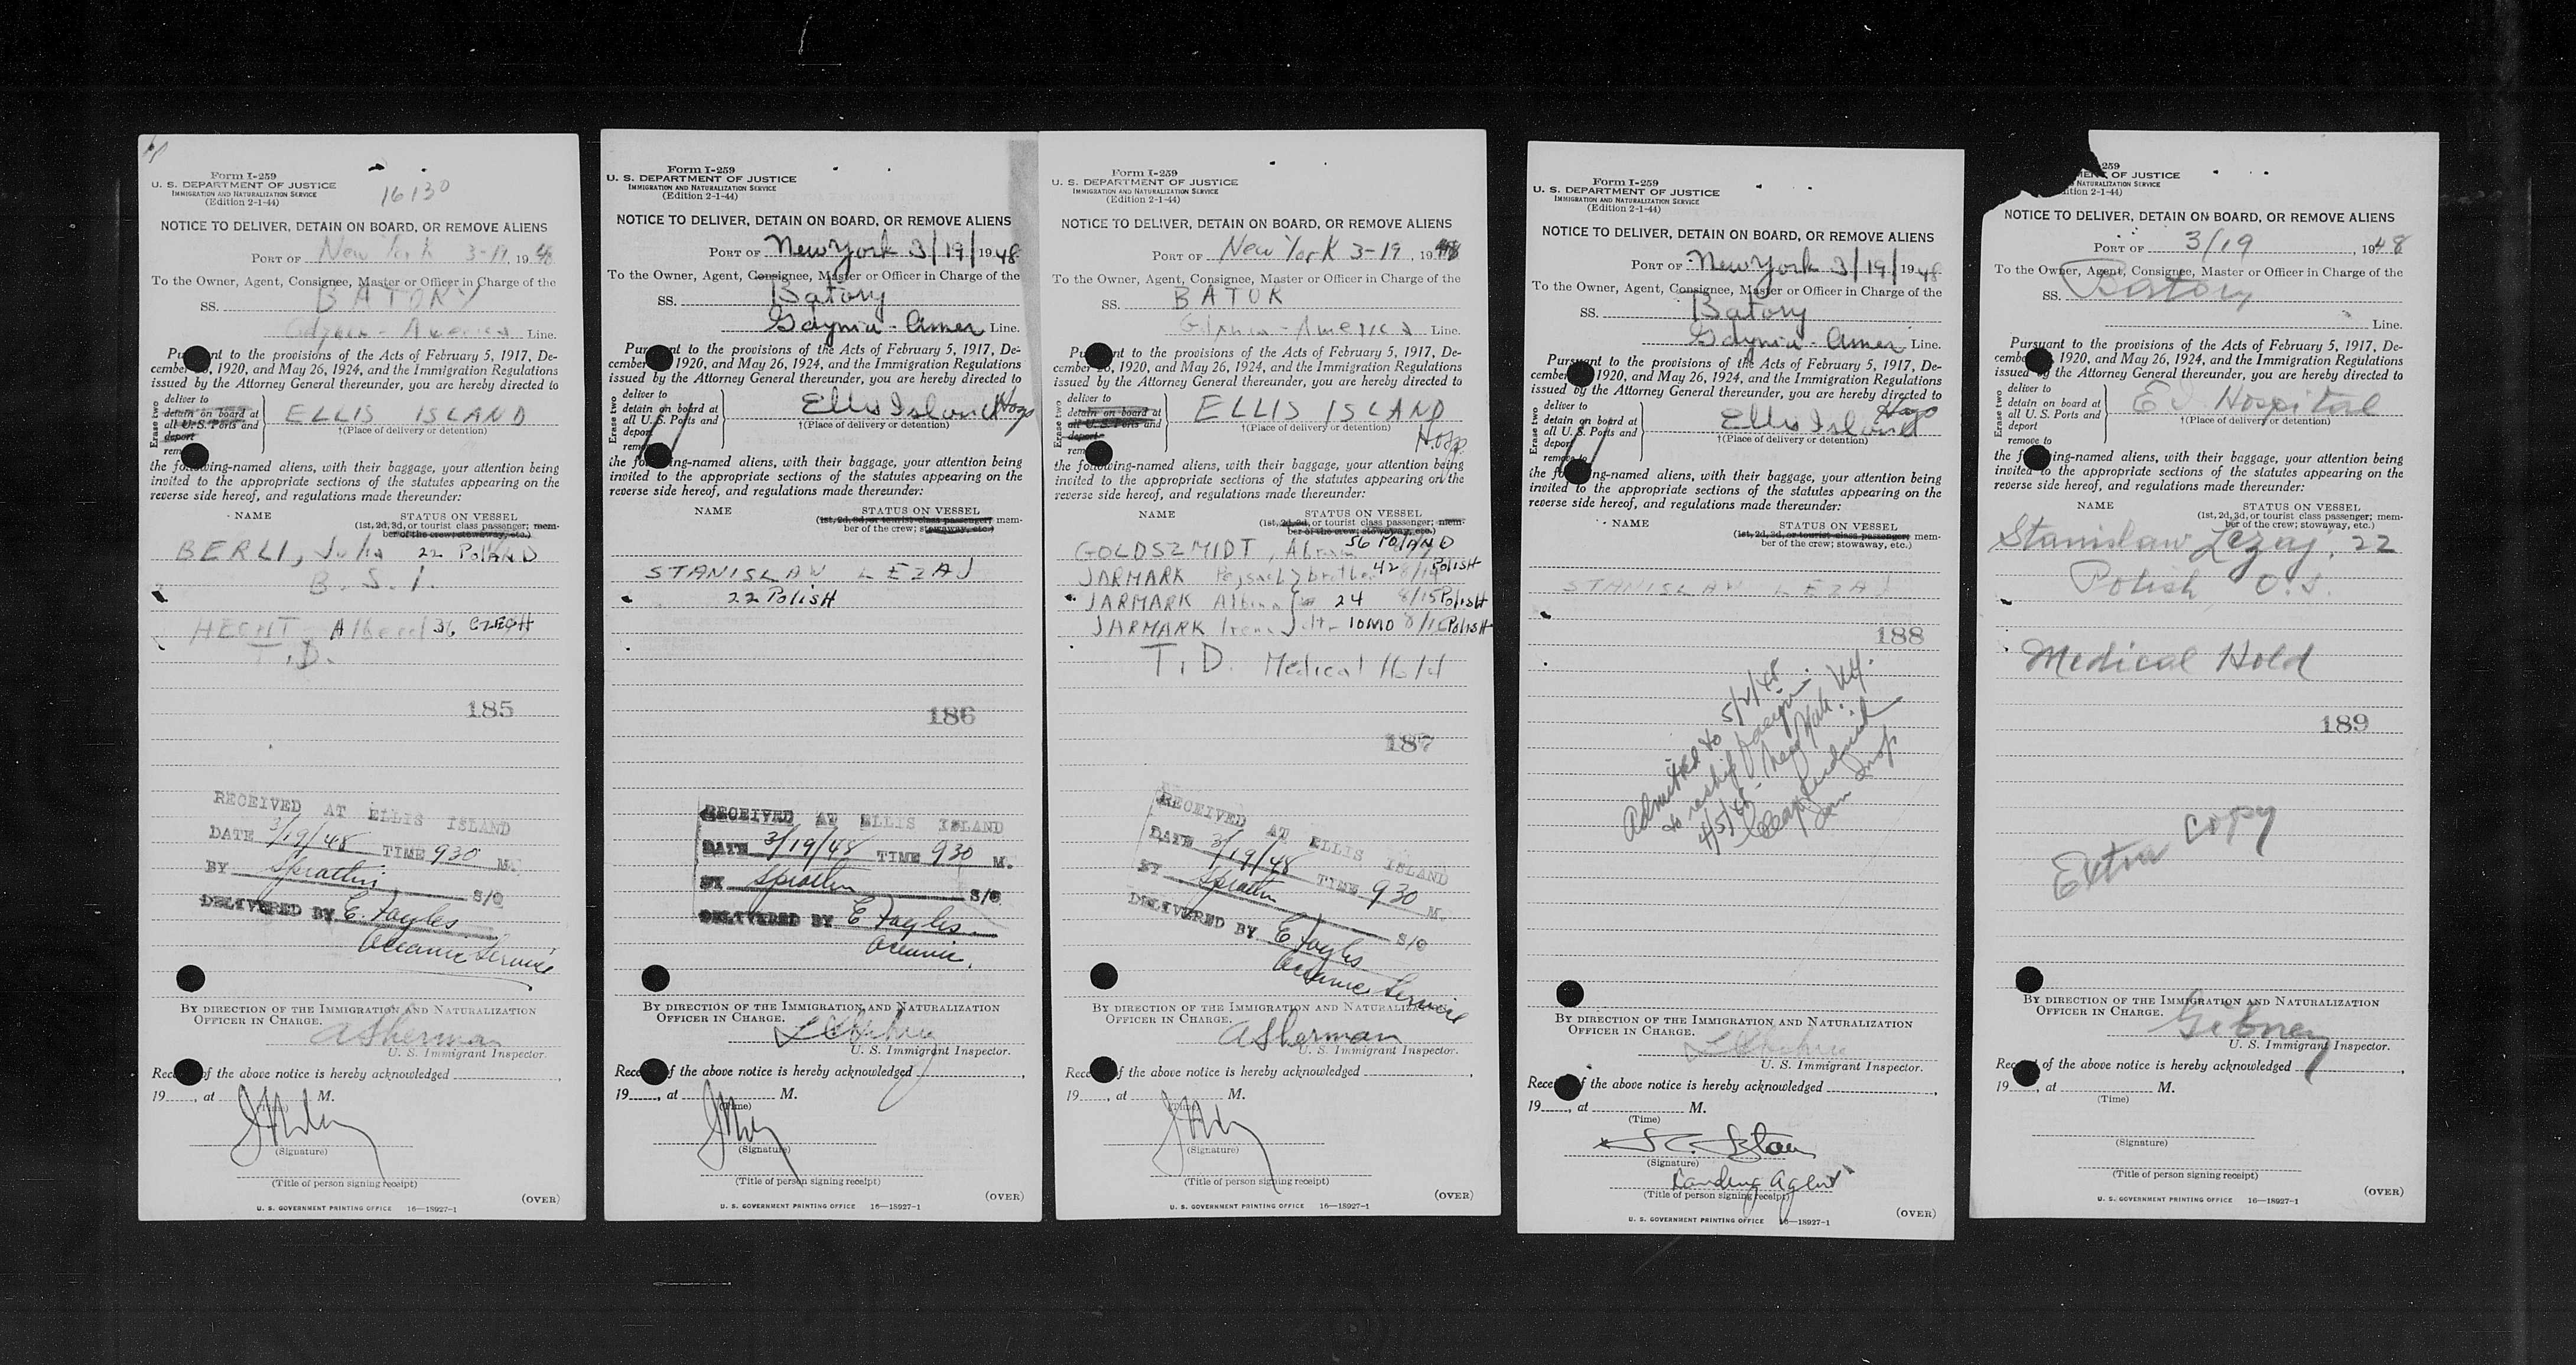 Form I-259
U. S. DEPARTMENT OF JUSTICE
IMMIGRATION AND NATURALIZATION SERVICE
(Edition 2-1-44)
16130
NOTICE TO DELIVER, DETAIN ON BOARD, OR REMOVE ALIENS
PORT OF New York 3-19, 1948
To the Owner, Agent, Consignee, Master or Officer in Charge of the
SS. BATORY
America Line.
Pursuant to the provisions of the Acts of February 5, 1917, De-
cember 1920, and May 26, 1924, and the Immigration Regulations
issued by the Attorney General thereunder, you are hereby directed to
Erase two
deliver to
detain on board at
all U. S. Ports and
deport
rem
ELLIS ISLAND
†(Place of delivery or detention)
the following-named aliens, with their baggage, your attention being
invited to the appropriate sections of the statutes appearing on the
reverse side hereof, and regulations made thereunder:
NAME
STATUS ON VESSEL
(1st, 2d, 3d, or tourist class passenger; mem-
ber of the crew; stowaway, etc.)
BERLI, Julia 22 POLAND
B. S. I.
HECHT Albert 36 CZECH
T. D.
185
RECEIVED AT ELLIS ISLAND
DATE 3/19/48 TIME 930 M.
BY S/O
DELIVERED BY E. Fayles
Oceanic Service
BY DIRECTION OF THE IMMIGRATION AND NATURALIZATION
OFFICER IN CHARGE.
A Sherman
U. S. Immigrant Inspector.
Rece of the above notice is hereby acknowledged ,
19 , at M.
(Time)
(Signature)
(Title of person signing receipt)
(OVER)
U. S. GOVERNMENT PRINTING OFFICE 16—18927-1
Form I-259
U. S. DEPARTMENT OF JUSTICE
IMMIGRATION AND NATURALIZATION SERVICE
(Edition 2-1-44)
NOTICE TO DELIVER, DETAIN ON BOARD, OR REMOVE ALIENS
PORT OF New York 3/19/1948
To the Owner, Agent, Consignee, Master or Officer in Charge of the
SS. Batory
Gdynia-Amer Line.
Pursuant to the provisions of the Acts of February 5, 1917, De-
cember 1920, and May 26, 1924, and the Immigration Regulations
issued by the Attorney General thereunder, you are hereby directed to
Erase two
deliver to
detain on board at
all U. S. Ports and
deport
rem
Ellis Island Hosp
†(Place of delivery or detention)
the following-named aliens, with their baggage, your attention being
invited to the appropriate sections of the statutes appearing on the
reverse side hereof, and regulations made thereunder:
NAME
STATUS ON VESSEL
(1st, 2d, 3d, or tourist class passenger; mem-
ber of the crew; stowaway, etc.)
STANISLAW LEZAJ
22 POLISH
186
RECEIVED AT ELLIS ISLAND
DATE 3/19/48 TIME 930 M.
BY S/O
DELIVERED BY E Fayles
Oceanic
BY DIRECTION OF THE IMMIGRATION AND NATURALIZATION
OFFICER IN CHARGE.
U. S. Immigrant Inspector.
Rece of the above notice is hereby acknowledged ,
19 , at M.
(Time)
(Signature)
(Title of person signing receipt)
(OVER)
U. S. GOVERNMENT PRINTING OFFICE 16—18927-1
Form I-259
U. S. DEPARTMENT OF JUSTICE
IMMIGRATION AND NATURALIZATION SERVICE
(Edition 2-1-44)
NOTICE TO DELIVER, DETAIN ON BOARD, OR REMOVE ALIENS
PORT OF New York 3-19, 1948
To the Owner, Agent, Consignee, Master or Officer in Charge of the
SS. BATOR
America Line.
Pursuant to the provisions of the Acts of February 5, 1917, De-
cember 1920, and May 26, 1924, and the Immigration Regulations
issued by the Attorney General thereunder, you are hereby directed to
Erase two
deliver to
detain on board at
all U. S. Ports and
deport
rem
ELLIS ISLAND
†(Place of delivery or detention)
Hosp.
the following-named aliens, with their baggage, your attention being
invited to the appropriate sections of the statutes appearing on the
reverse side hereof, and regulations made thereunder:
NAME
STATUS ON VESSEL
(1st, 2d, 3d, or tourist class passenger; mem-
ber of the crew; stowaway, etc.)
GOLDSZMIDT, Abram 56 POLAND
JARMARK brother 42 8/14 POLISH
JARMARK Albina 24 8/15 POLISH
JARMARK Irena 10 MO 8/16 POLISH
T. D. Medical Hold
187
RECEIVED AT ELLIS ISLAND
DATE 3/19/48 TIME 930 M.
BY S/O
DELIVERED BY E Fayles
Oceanic Service
BY DIRECTION OF THE IMMIGRATION AND NATURALIZATION
OFFICER IN CHARGE.
A Sherman
U. S. Immigrant Inspector.
Rece of the above notice is hereby acknowledged ,
19 , at M.
(Time)
(Signature)
(Title of person signing receipt)
(OVER)
U. S. GOVERNMENT PRINTING OFFICE 16—18927-1
Form I-259
U. S. DEPARTMENT OF JUSTICE
IMMIGRATION AND NATURALIZATION SERVICE
(Edition 2-1-44)
NOTICE TO DELIVER, DETAIN ON BOARD, OR REMOVE ALIENS
PORT OF New York 3/19/1948
To the Owner, Agent, Consignee, Master or Officer in Charge of the
SS. Batory
Gdynia-Amer Line.
Pursuant to the provisions of the Acts of February 5, 1917, De-
cember 1920, and May 26, 1924, and the Immigration Regulations
issued by the Attorney General thereunder, you are hereby directed to
Erase two
deliver to
detain on board at
all U. S. Ports and
deport
remove to
Ellis Island Hosp
†(Place of delivery or detention)
the following-named aliens, with their baggage, your attention being
invited to the appropriate sections of the statutes appearing on the
reverse side hereof, and regulations made thereunder:
NAME
STATUS ON VESSEL
(1st, 2d, 3d, or tourist class passenger; mem-
ber of the crew; stowaway, etc.)
STANISLAW LEZAJ
188
Admitted to 5/2/48
to reship foreign.
4/5/48
Insp
BY DIRECTION OF THE IMMIGRATION AND NATURALIZATION
OFFICER IN CHARGE.
U. S. Immigrant Inspector.
Rece of the above notice is hereby acknowledged ,
19 , at M.
(Time)
(Signature)
Landing Agent
(Title of person signing receipt)
(OVER)
U. S. GOVERNMENT PRINTING OFFICE 16—18927-1
259
MENT OF JUSTICE
NATURALIZATION SERVICE
ition 2-1-44)
NOTICE TO DELIVER, DETAIN ON BOARD, OR REMOVE ALIENS
PORT OF 3/19, 1948
To the Owner, Agent, Consignee, Master or Officer in Charge of the
SS. Batory
Line.
Pursuant to the provisions of the Acts of February 5, 1917, De-
cember 1920, and May 26, 1924, and the Immigration Regulations
issued by the Attorney General thereunder, you are hereby directed to
Erase two
deliver to
detain on board at
all U. S. Ports and
deport
remove to
E I Hospital
†(Place of delivery or detention)
the following-named aliens, with their baggage, your attention being
invited to the appropriate sections of the statutes appearing on the
reverse side hereof, and regulations made thereunder:
NAME
STATUS ON VESSEL
(1st, 2d, 3d, or tourist class passenger; mem-
ber of the crew; stowaway, etc.)
Stanislaw Lezaj, 22
Polish, O.S.
Medical Hold
189
Extra Copy
BY DIRECTION OF THE IMMIGRATION AND NATURALIZATION
OFFICER IN CHARGE.
Gibney
U. S. Immigrant Inspector.
Rece of the above notice is hereby acknowledged ,
19 , at M.
(Time)
(Signature)
(Title of person signing receipt)
(OVER)
U. S. GOVERNMENT PRINTING OFFICE 16—18927-1